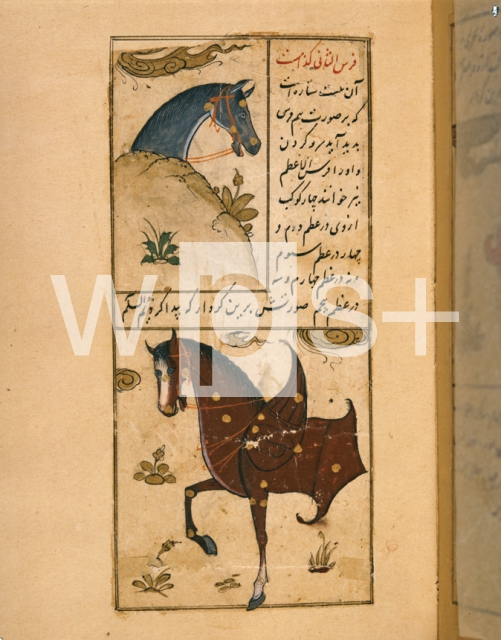 فرس الثانی
آن بیست ستاره است
که بر صورت نیم فرس
بدید آید سر و گردن
و او را فرس الاعظم
نیز خوانند چهار کوکب
ازوی در عظم دوم و
چهار در عظم سوم
در عظم چهارم و سه
در عظم پنجم صورتش برین کردار که پیدا کردیم
wps+